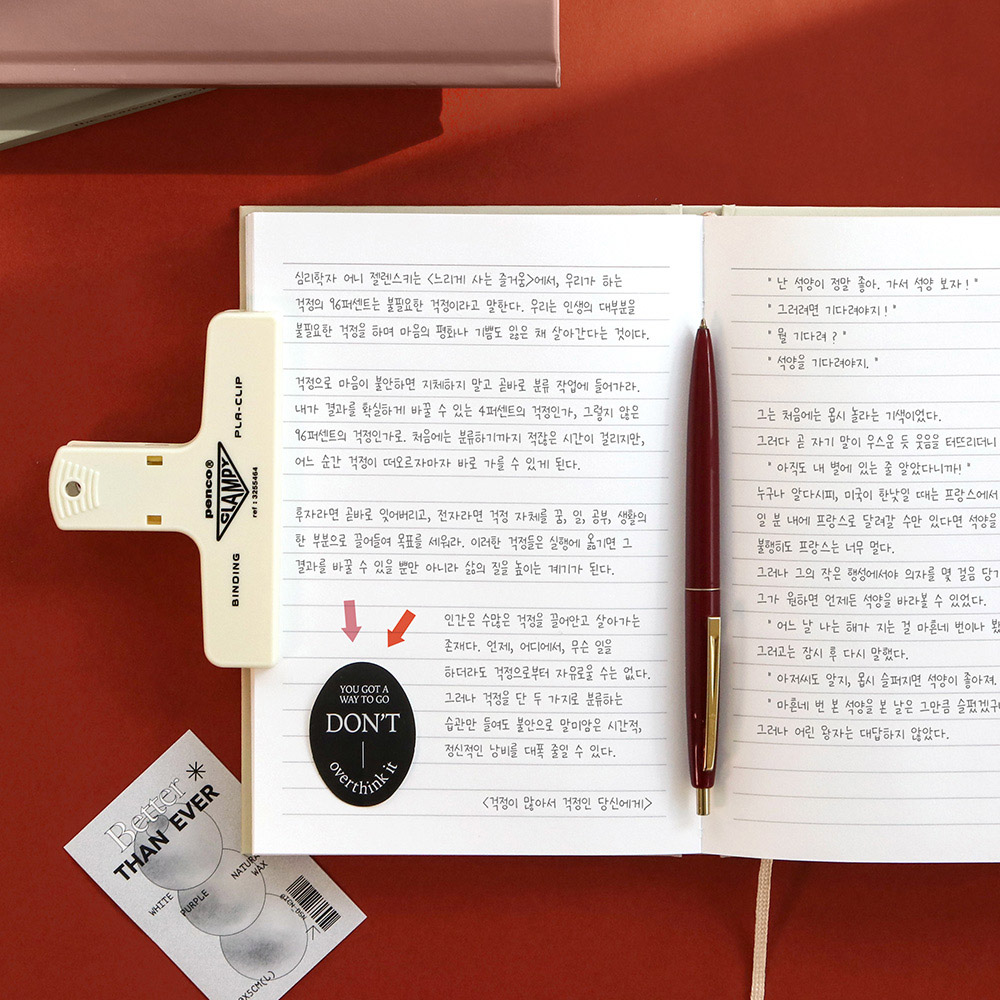 심리학자 어니 젤렌스키는 <느리게 사는 즐거움>에서, 우리가 하는
걱정의 96퍼센트는 불필요한 걱정이라고 말한다. 우리는 인생의 대부분을
불필요한 걱정을 하며 마음의 평화나 기쁨도 잃은 채 살아간다는 것이다.
걱정으로 마음이 불안하면 지체하지 말고 곧바로 분류 작업에 들어가라.
내가 결과를 확실하게 바꿀 수 있는 4퍼센트의 걱정인가, 그렇지 않은
96퍼센트의 걱정인가로. 처음에는 분류하기까지 적잖은 시간이 걸리지만,
어느 순간 걱정이 떠오르자마자 바로 가를 수 있게 된다.
후자라면 곧바로 잊어버리고, 전자라면 걱정 자체를 꿈, 일, 공부, 생활의
한 부분으로 끌어들여 목표를 세워라. 이러한 걱정들은 실행에 옮기면 그
결과를 바꿀 수 있을 뿐만 아니라 삶의 질을 높이는 계기가 된다.
인간은 수많은 걱정을 끌어안고 살아가는
존재다. 언제, 어디에서, 무슨 일을
하더라도 걱정으로부터 자유로울 수는 없다.
그러나 걱정을 단 두 가지로 분류하는
습관만 들여도 불안으로 말미암은 시간적,
정신적인 낭비를 대폭 줄일 수 있다.
<걱정이 많아서 걱정인 당신에게>
YOU GOT A
WAY TO GO
DON'T
overthink it
" 난 석양이 정말 좋아. 가서 석양 보자! "
" 그러려면 기다려야지! "
" 뭘 기다려? "
" 석양을 기다려야지. "
그는 처음에는 몹시 놀라는 기색이었다.
그러다 곧 자기 말이 우스운 듯 웃음을 터뜨리더니
" 아직도 내 별에 있는 줄 알았다니까! "
누구나 알다시피, 미국이 한낮일 때는 프랑스에서
일 분 내에 프랑스로 달려갈 수만 있다면 석양을
불행히도 프랑스는 너무 멀다.
그러나 그의 작은 행성에서야 의자를 몇 걸음 당기
그가 원하면 언제든 석양을 바라볼 수 있었다.
" 어느 날 나는 해가 지는 걸 마흔네 번이나 봤
그러고는 잠시 후 다시 말했다.
" 아저씨도 알지, 몹시 슬퍼지면 석양이 좋아져.
" 마흔네 번 본 석양을 본 날은 그만큼 슬펐겠구
그러나 어린 왕자는 대답하지 않았다.
PLA-CLIP
penco®
CLAMPY
ref : 3255464
BINDING
Better
THAN EVER
WHITE
PURPLE
NATURAL
WAX